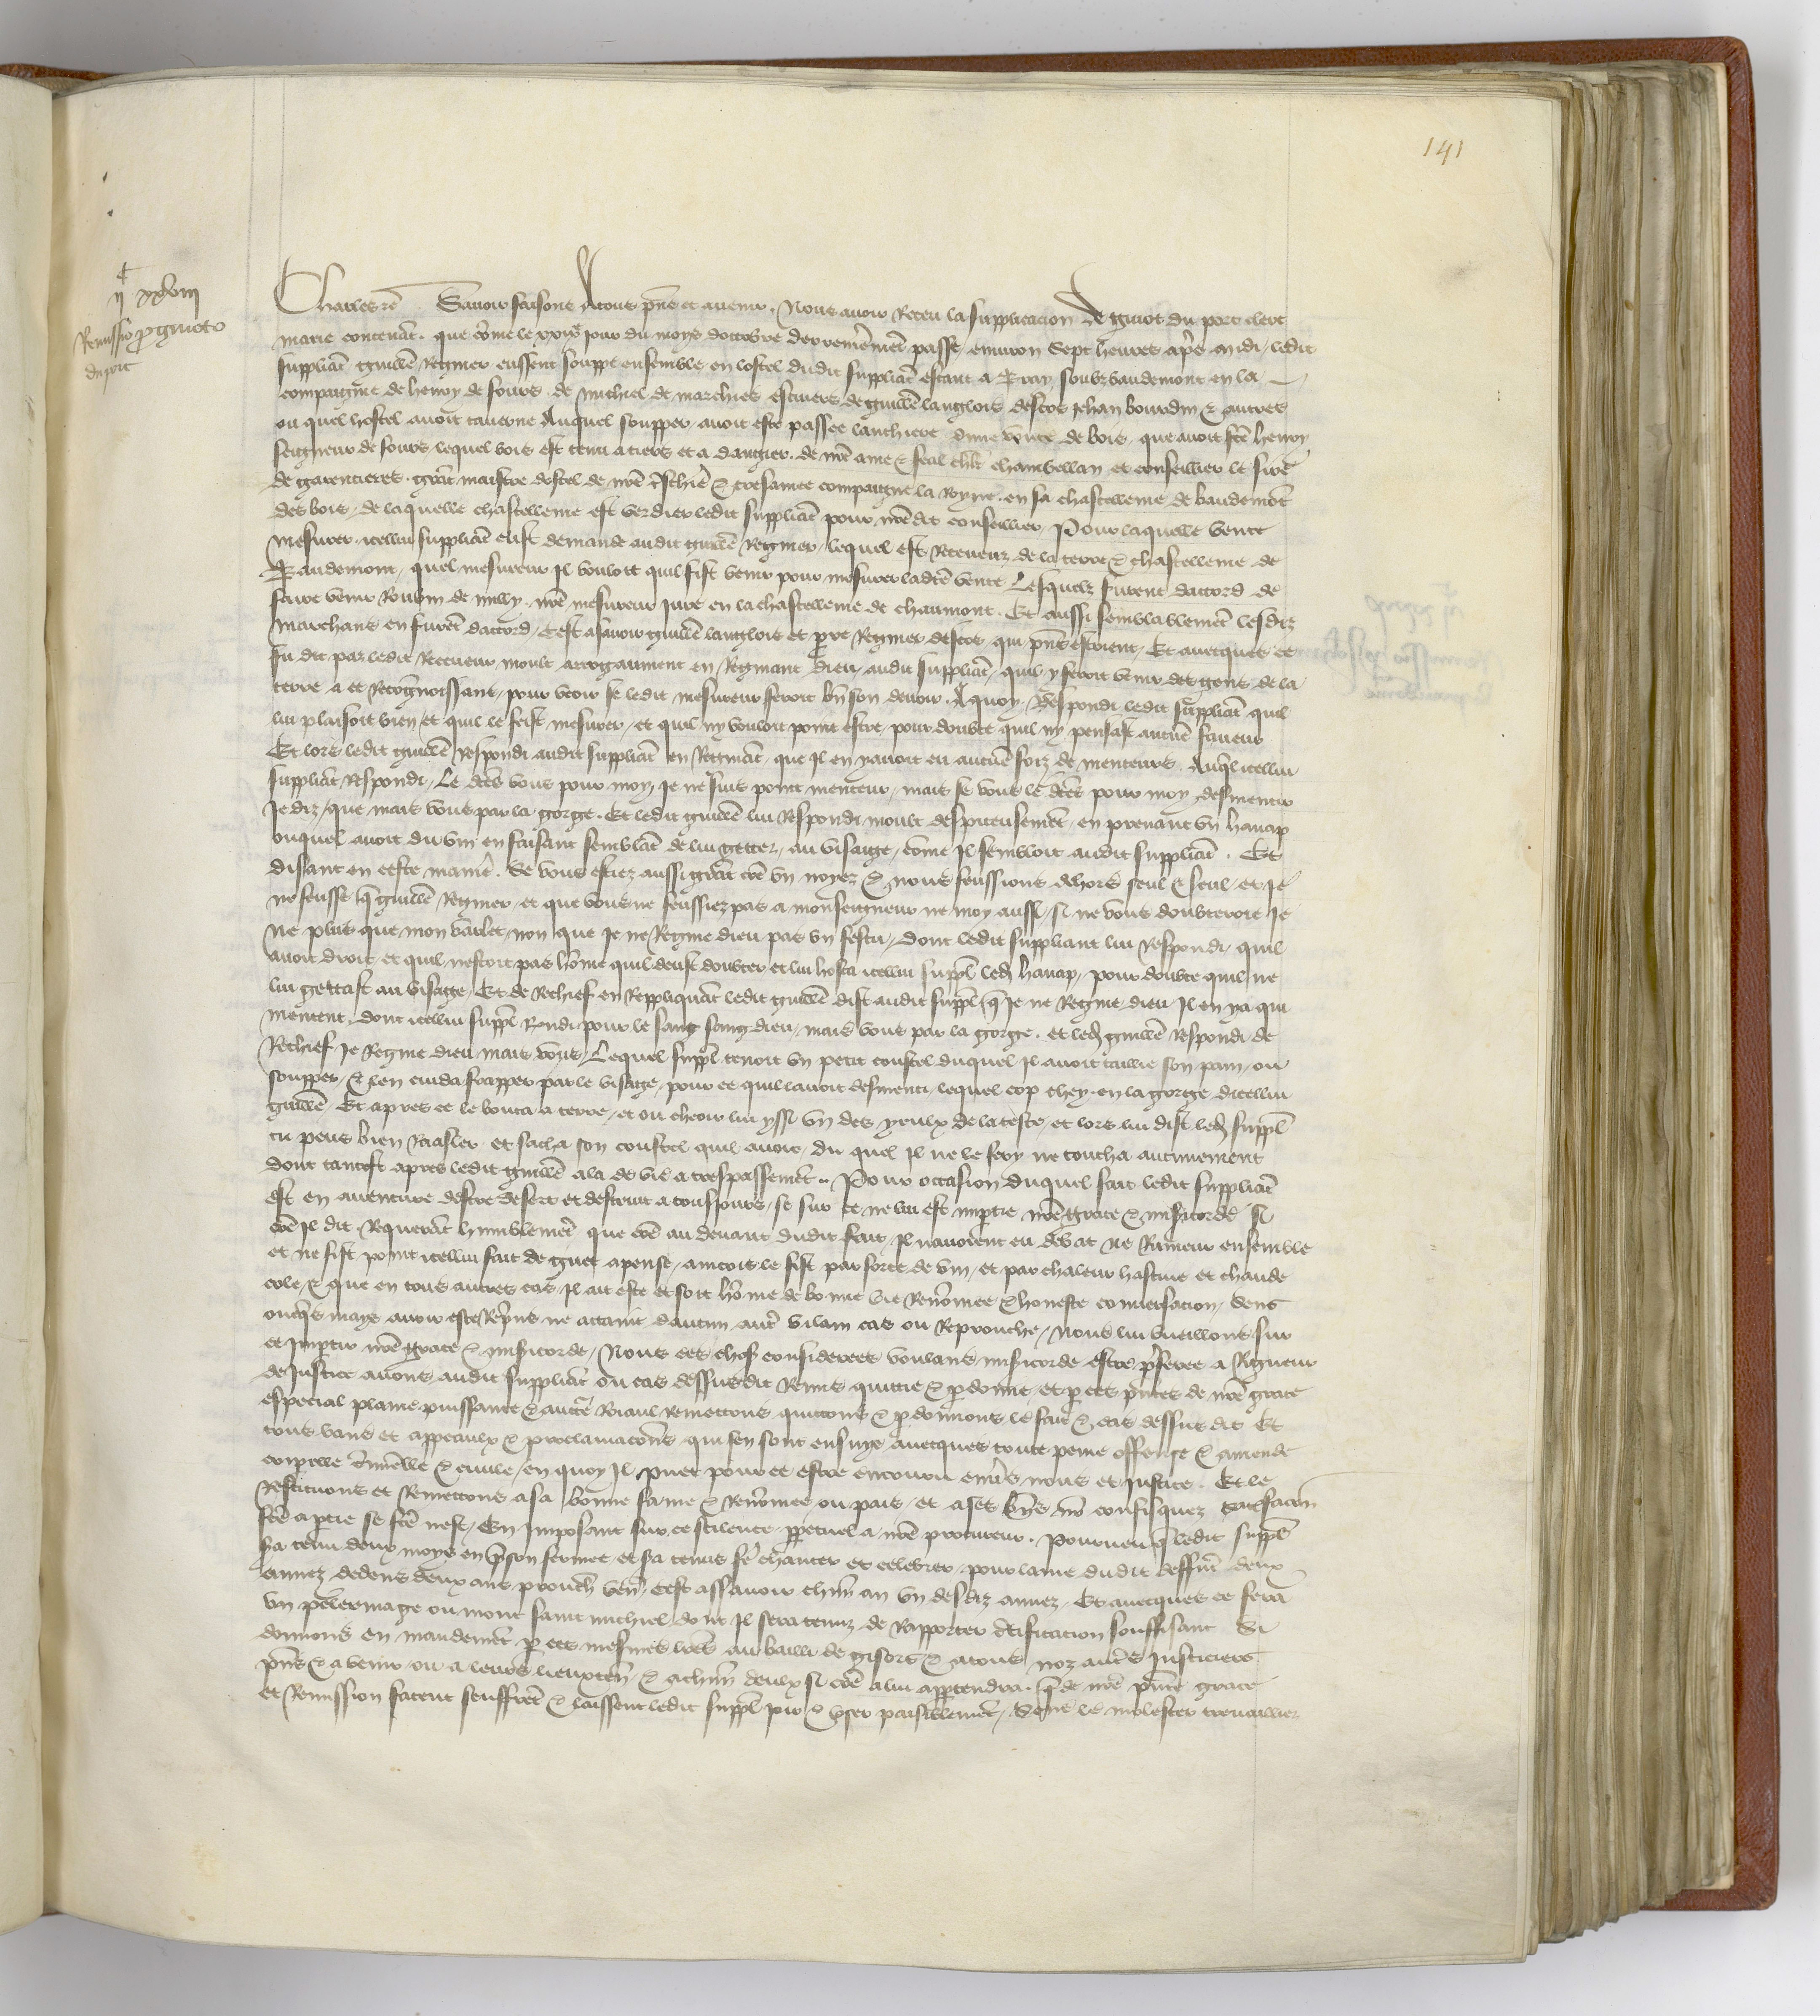 141
IIc XXVIII
Remissio pro guioto
du port
Charles etc. Savoir faisons A tous pñs et avenir. Nous avoir receu la supplicacion De guiot du port clerc
marie contenãt. que cõme le xxixe jour du moys doctobre derrenierement passe environ sept heures apres midi ledit
suppliãt guillẽ Regnier eussent souppe ensemble en lostel dudit suppliãt estant a Pray soubz baudemont en la
compaignie de henry de fours. de michiel de marchies escuiers de guillẽ langlois descos jehan bourdin & autres
ou quel hostel avoit taverne Auquel soupper avoit este passee lenchiere dune vente de bois que avoit fcẽ henry
seigneur de fours lequel bois est tenu a tiers et a dangier. de nrẽ ame & feal chlr chambellan et conseillier le sire
de garencieres. grãt maistre dostel de nrẽ treschiere & tresamee compaigne la Royne. en sa chastellenie de baudemõt
des bois. de laquelle chastellenie est verdier ledit suppliãt pour nrẽdit conseillier. Pour laquelle vente
mesurer icellui suppliãt eust demande audit guillẽ Regnier lequel est Receveur de la terre & chastellenie de
Baudemont, quel mesureur Il vouloit quil fist venir pour mesurer ladicte vente Lesquelz furent daccord de
faire venir Robin de nully. nrẽ mesureur jure en la chastellenie de chaumont. Et aussi semblablement lesdiz
marchans en furẽt daccord, Cest assavoir guillẽ langlois et pierre Regnier descos qui pñs estoient, Et avecques ce
fu dit par ledit Receveur moult arrogaument en Regniant dieu audit suppliãt, quil y feroit venir des gens de la
terre a ce Recognoissans, pour veoir se ledit mesureur feroit biẽ son devoir. A quoy Respondi ledit suppliãt quil
lui plaisoit bien et quil le feist mesurer, et quil ny vouloit point estre, pour doubte quil ny pensast aucune faveur
Et lors ledit guillẽ respondi audit suppliãt en Regniãt que Il en y avoit eu aucunefoiz de menteurs. Auquel icellui
suppliãt Respondi, Le dictes vous pour moy, Je ne suis point menteur, mais se vous le dictes pour moy desmentir
Je diz, que mais vous par la gorge. Et ledit guillẽ lui Respondi moult despiteusement, en prenant un hanap
ouquel avoit du vin en faisant semblãt de lui getter, au visaige, cõme Il sembloit audit suppliãt. Et
disant en ceste manière. Se vous estiez aussi grãt cõe un noyer & nous feussions dehors seul & seul, et Je
ne feusse que guillẽ Regnier, et que vous ne feussiez pas a monseigneur ne moy aussi, si ne vous doubteroie Je
ne plus que mon varlet, non que Je ne Regnie dieu pas un festu, dont ledit suppliant lui Respondi, quil
avoit droit, et quil nestoit pas hõme quil deust doubter et lui hosta icellui suppl ledit hanap, pour doubte quil ne
lui gettast au visaige, Et de Rechief en Repliquãt ledit guillẽ dist audit suppl que Je ne Regnie dieu Il en y a qui
mentent, dont icellui suppl Rendi pour le sang sang dieu, mais vous par la gorge. et ledit guillẽ respondi de
Rechief Je Regnie dieu mais vous, Lequel suppl tenoit un petit coustel duquel Il avoit taillie son pain, ou
soupper, & len cuida frapper par le visaige, pour ce quil lavoit desmenti, lequel cop chey en la gorge dicellui
guillẽ. Et apres ce le bouta a terre, et ou cheoir lui yssi un des yeulx de la teste, et lors lui dist ledit suppl
tu peus bien Raaler et sacha son coustel quil avoit, du quel Il ne le fery ne toucha aucunement
dont tantost apres ledit guillẽ ala de vie a trespassemẽt. Pour occasion duquel fait ledit suppliãt
est en aventure destre desert et destruit a tousjours, se sur ce ne lui est impartie nrẽ grace & misericorde si
cõe Il dit. Requerãt humblement que cõe au devant dudit fait, Il navoient eu debat ne Rumeur ensemble
et ne fist point icellui fait de guet apense, aincois le fist par force de vin, et par chaleur hastive et chaude
cole, & que en tous autres cas, Il ait este et soit hõme de bonne vie Renõmee & honeste conversacion, sens
oncques mais avoir este Repris ne attaint daucun autre vilain cas ou Reprouche, Nous lui vueillons sur
ce impartir nrẽ grace & misericorde, Nous ces choses considerees voulans misericorde estre preferee a Rigueur
de Justice avons audit suppliãt ou cas dessusdit Remis quittie & pardonne, et par ces pñtes de nrẽ grace
especial plaine puissance & aucte Roial Remettons quittons & pardonnons le fait & cas dessus dit Et
tous bans et appeaulx & proclamacions qui sen sont ensuye avecques toute peine offense & amende
corporelle criminelle & civile, en quoy Il puet pour ce estre encouru envers nous et Justice. Et le
Restituons et Remettons a sa bonne fame & Renõmee, ou pais, et a ses biẽs nõ confisquez Satisfacion
fcẽ a partie se fcẽ nest, En Imposant sur ce scilence perpetuel a nrẽ procureur. Pourveu que ledit suppl
sera tenu deux moys en prison fermee et sera tenus fẽ chanter et celebrer, pour lame dudit deffunct deux
annuez dedens deux ans prouch ven. cest assavoir chm̃ an un desdiz annuez. Et avecques ce fera
un pelerinage ou mont saint michiel, dont Il sera tenuz de Rapporter certificacion souffisant Si
donnons en mandement par ces mesmes lrẽs au bailli de gisors & a tous noz autres Justiciers
pñs & avenir ou a leurs lieuxten & a chm̃ deulx si cõe a lui appartendra. que de nrẽ pñte grace
et Remission facent seuffrẽt & laissent ledit suppl joir & user paisiblement, sens le molester travaillier